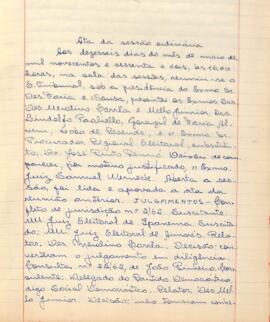 Ata da sessão ordinária
Aos dezesseis dias do mês de maio de
mil novecentos e sessenta e dois, às 16,00
horas, na sala das sessões, reuniu-se o
E. Tribunal, sob a presidência do Exmo. Sr.
Des. Faria e Sousa, presentes os Exmos. Srs.
Des. Merolino Corrêa e Mello Júnior, Drs.
Lindolfo Paoliello,
Lobo de Rezende, e o Exmo. Sr.
Procurador Regional Eleitoral, substitu-
to, Dr. José Pinto Deixou de com-
parecer, por motivo justificado, o Exmo.
Juiz Samuel Werneck. Aberta a ses-
são, foi lida e aprovada a ata da
reunião anterior. JULGAMENTOS - Con-
flito de jurisdição nº 2/62. Suscitante:
MM. Juiz Eleitoral de Ipanema. Suscita-
do: MM. Juiz Eleitoral de Rela-
tor: Des. Merolino Corrêa. Decisão: con-
verteram o julgamento em diligência.
Consulta nº 26/62, de João Pinheiro. Con-
sulente: Delegado do Partido Democrático
Social Democrático. Relator: Des. Mel-
lo Júnior. Decisão: não tomaram conhe-